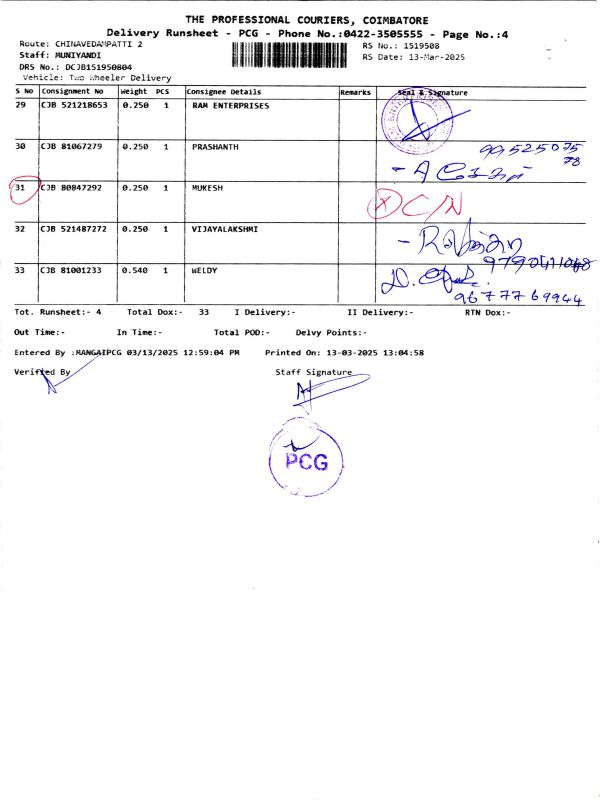 THE PROFESSIONAL COURIERS, COIMBATORE
Delivery Runsheet - PCG - Phone No.:0422-3505555 - Page No.:4
Route: CHINAVEDAMPATTI 2 RS No.: 1519508
Staff: MUNIYANDI RS Date: 13-Mar-2025
DRS No.: DCJB151950804
Vehicle: Two Wheeler Delivery
S No Consignment No Weight PCS Consignee Details Remarks Seal & Signature
29 CJB 521218653 0.250 1 RAM ENTERPRISES
30 CJB 81067279 0.250 1 PRASHANTH 9952507578
31 CJB 80847292 0.250 1 MUKESH X C/N
32 CJB 521487272 0.250 1 VIJAYALAKSHMI
33 CJB 81001233 0.540 1 WELDY
9677769944
Tot. Runsheet:- 4 Total Dox:- 33 I Delivery:- II Delivery:- RTN Dox:-
Out Time:- In Time:- Total POD:- Delvy Points:-
Entered By :MANGAIPCG 03/13/2025 12:59:04 PM Printed On: 13-03-2025 13:04:58
Verified By Staff Signature
PCG